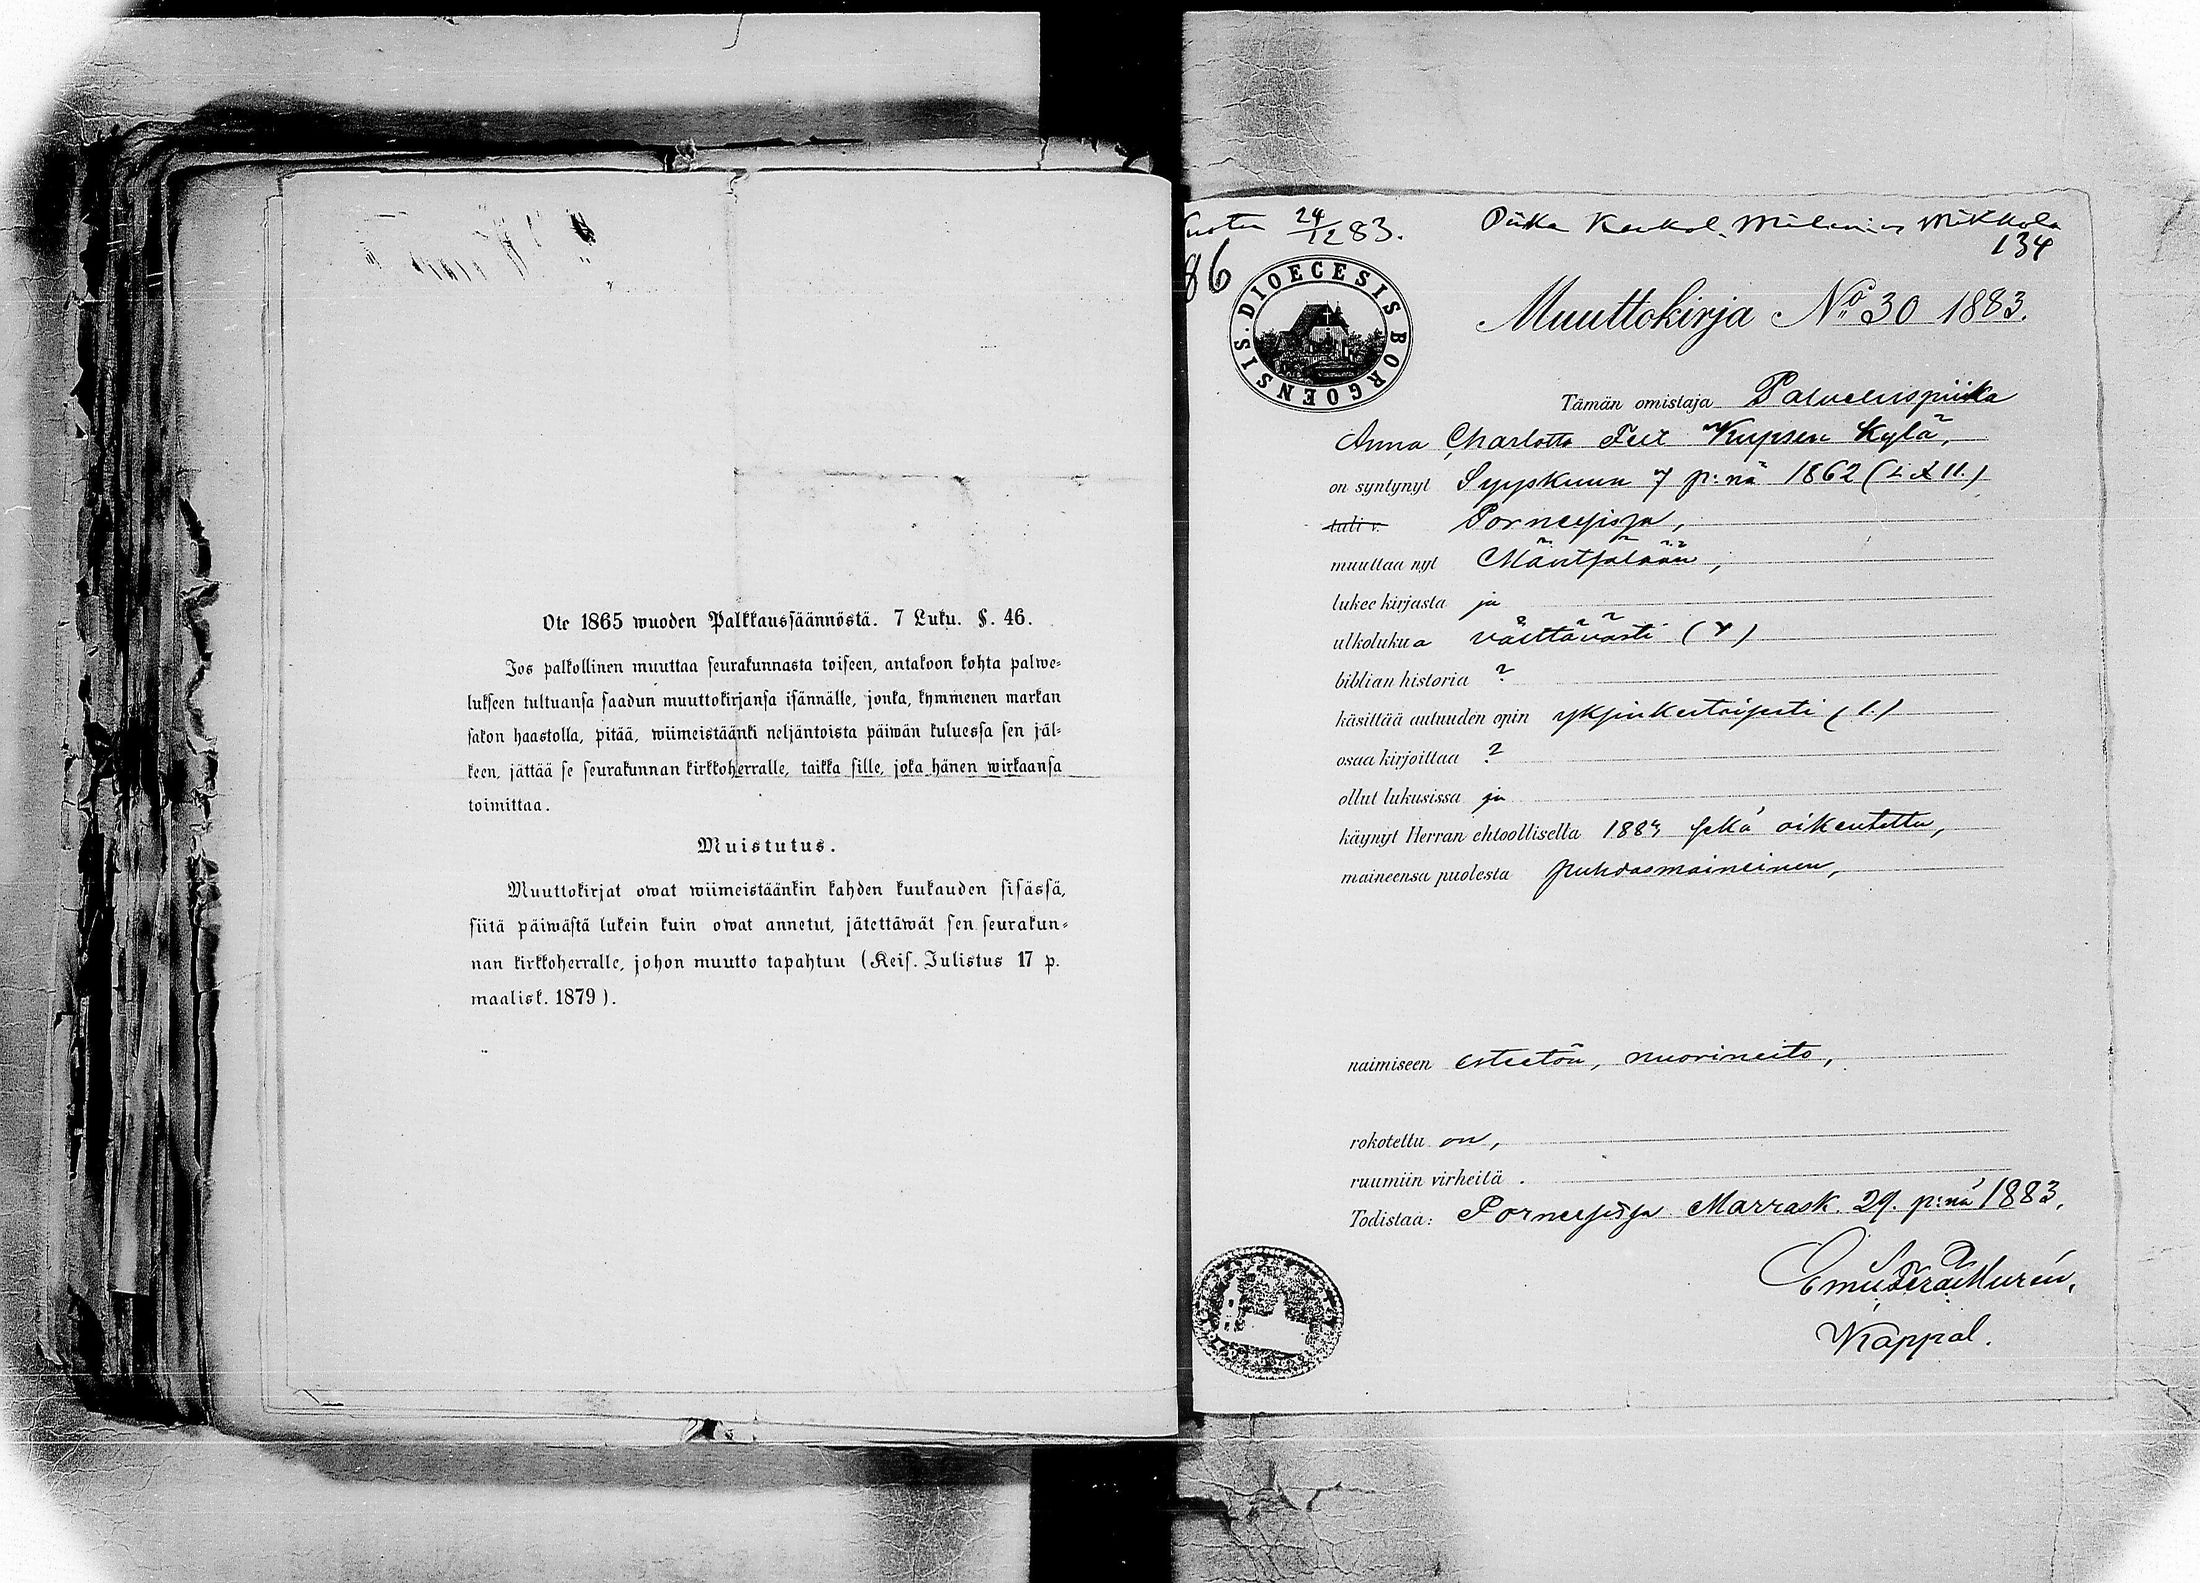 Ote 1865 wuoden Palkkaussäännöstä. 7 Luku. §. 46.
Jos palkollinen muuttaa seurakunnasta toiseen, antakoon kohta palwe-
lukseen tultuansa saadun muuttokirjansa isännälle, jonka, kymmenen markan
sakon haastolla, pitää, wiimeistäänki neljäntoista päiwän kuluessa sen jäl-
keen, jättää se seurakunnan kirkkoherralle, taikka sille, joka hänen wirkaansa
toimittaa.
Muistutus.
Muuttokirjat owat wiimeistäänkin kahden kuukauden sisässä,
siitä päiwästä lukein kuin owat annetut, jätettäwät sen seurakun-
nan kirkkoherralle, johon muutto tapahtuu (Keis. Julistus 17 p.
maalisk. 1879).
24/12 83. Piika Mikkola
134
86
DIOECESIS BORGOENSIS.
Muuttokirja No 30 1883.
Tämän omistaja Palveluspiika
Anna Charlotta Kupsen kylä,
on syntynyt Syyskuun 7 p:nä 1862 (LXII.)
tuli v. Porneesissa,
muuttaa nyt Mäntsälään,
lukee kirjasta ja
ulkolukua välttävästi (Y)
biblian historia ?
käsittää autuuden opin yksinkertaisesti (1.)
osaa kirjoittaa ?
ollut lukusissa ja
käynyt Herran ehtoollisella 1883 sekä oikeutettu,
maineensa puolesta puhdasmaineinen,
naimiseen esteetön, nuorineito,
rokotettu on,
ruumiin virheitä .
Todistaa: Porneesissa Marrask. 29. p:nä 1883.
Kappal.